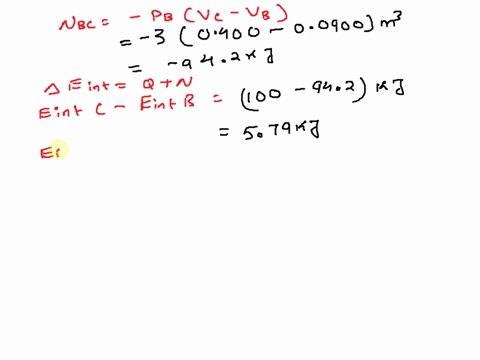 NBC = - PB (VC - VB)
= -3 (0.400 - 0.0900) m³
= -94.2 KJ
Δ Eint = Q + N
Eint C - Eint B = (100 - 94.2) KJ
= 5.79 KJ
En